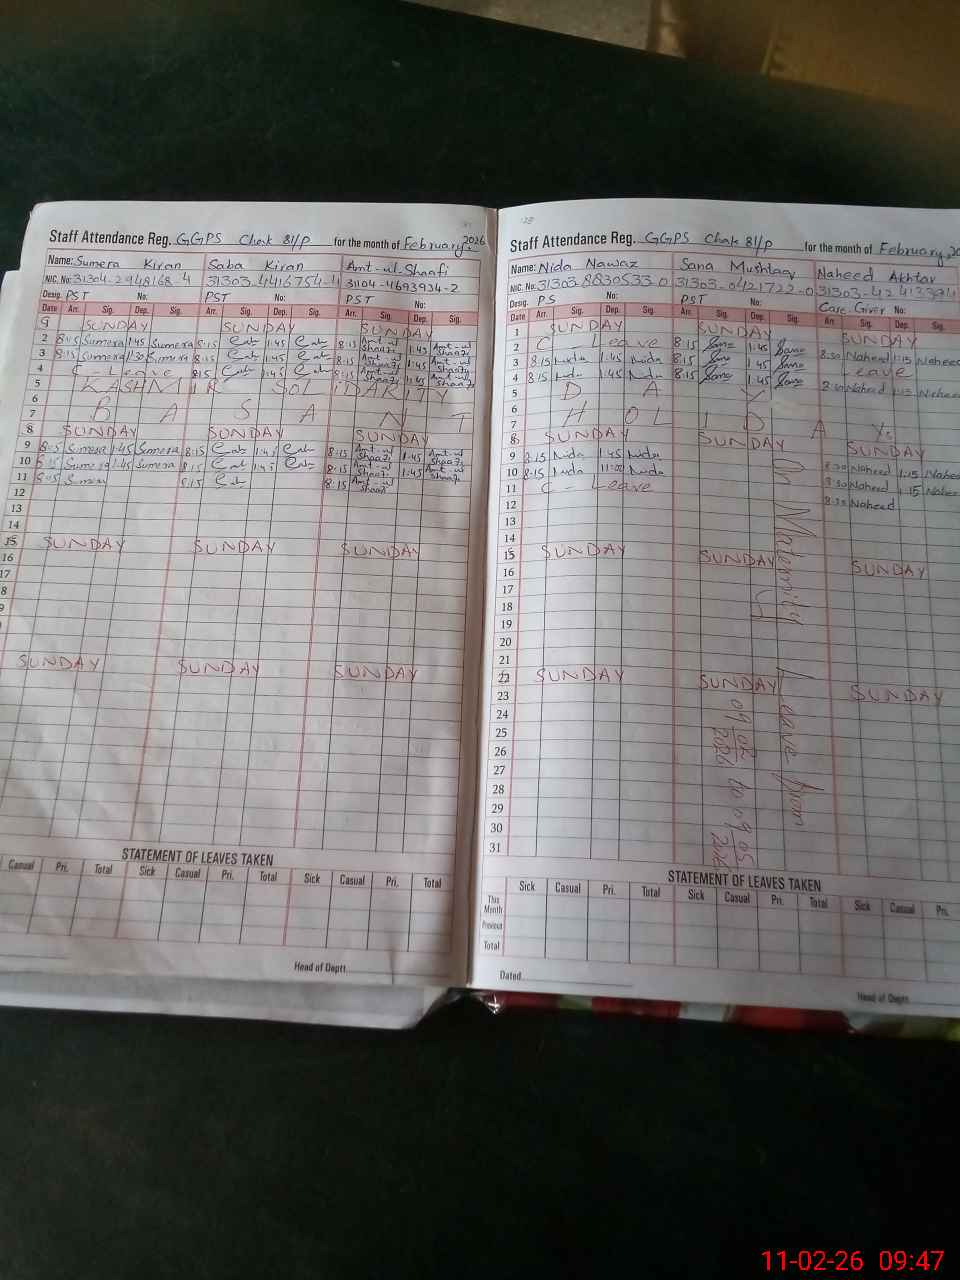 Staff Attendance Reg. GGPS Chak 81/P for the month of February, 2026
Name: Sumera Kiran Saba Kiran Amt-ul-Shaafi
NIC. No: 31304-2948168-4 31303-4416754-4 31104-4693934-2
Desig. PST No: PST No: PST No:
Date Arr. Sig. Dep. Sig. Arr. Sig. Dep. Sig. Arr. Sig. Dep. Sig.
SUNDAY SUNDAY SUNDAY
2 8:15 Sumera 1:45 Sumera 8:15 1:45 8:15 Amt-ul Shaafi 1:45 Amt-ul Shaafi
3 8:15 Sumera 1:30 Sumera 8:15 1:45 8:15 Amt-ul Shaafi 1:45 Amt-ul Shaafi
4 C - Leave 8:15 1:45 8:15 Amt-ul Shaafi 1:45 Amt-ul Shaafi
5 KASHMIR SOLIDARITY
6
7 BASANT
8 SUNDAY SUNDAY SUNDAY
9 8:15 Sumera 1:45 Sumera 8:15 1:45 8:15 Amt-ul Shaafi 1:45 Amt-ul Shaafi
10 8:15 Sumera 1:45 Sumera 8:15 1:45 8:15 Amt-ul Shaafi 1:45 Amt-ul Shaafi
11 8:15 Sumera 8:15 8:15 Amt-ul Shaafi
12
13
14
15 SUNDAY SUNDAY SUNDAY
16
17
8
9
0
SUNDAY SUNDAY SUNDAY
STATEMENT OF LEAVES TAKEN
Casual Pri. Total Sick Casual Pri. Total Sick Casual Pri. Total
Head of Deptt.
Staff Attendance Reg. GGPS Chak 81/P for the month of February, 20
Name: Nida Nawaz Sana Mushtaq Naheed Akhtar
NIC. No: 31303-8830533-0 31303-0421722-0 31303-4242394
Desig. PS No: PST No: Care Giver No:
Date Arr. Sig. Dep. Sig. Arr. Sig. Dep. Sig. Arr. Sig. Dep. Sig.
1 SUNDAY SUNDAY SUNDAY
2 C - Leave 8:15 Sana 1:45 Sana 8:30 Naheed 1:15 Naheed
3 8:15 Nida 1:45 Nida 8:15 Sana 1:45 Sana Leave
4 8:15 Nida 1:45 Nida 8:15 Sana 1:45 Sana 8:30 Naheed 1:15 Naheed
5 DAY
6
7 HOLIDAYS
8 SUNDAY SUNDAY SUNDAY
9 8:15 Nida 1:45 Nida 8:30 Naheed 1:15 Naheed
10 8:15 Nida 11:00 Nida 8:30 Naheed 1:15 Naheed
11 C - Leave 8:30 Naheed
12
13
14
15 SUNDAY SUNDAY SUNDAY
16
17
18
19
20
21
22 SUNDAY SUNDAY SUNDAY
23
24
25
26
27
28
29
30
31
On Maternity Leave from
09/02/2026 to 09/05/2026
STATEMENT OF LEAVES TAKEN
Sick Casual Pri. Total Sick Casual Pri. Total Sick Casual Pri.
This Month
Previous
Total
Dated
Head of Deptt.
11-02-26 09:47